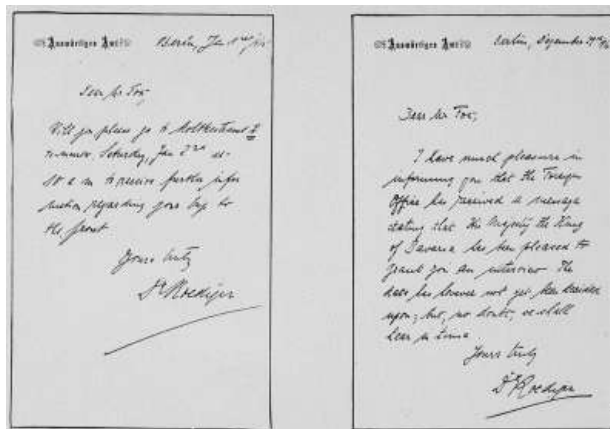 Auswärtiges Amt
Berlin, Jan 1st
Dear Mr Fox,
Will you please go to Moltkestrasse
to-morrow, Saturday, Jan 2nd at
10 a m to receive further infor
mation regarding your trip to
the front
Yours truly
Dr Roediger
Auswärtiges Amt
Berlin, Dezember
Dear Mr Fox,
I have much pleasure in
informing you that the Foreign
Office has received a message
stating that His Majesty the King
of Bavaria has been pleased to
grant you an interview The
date has however not yet been decided
upon; but, no doubt, we shall
hear in time
Yours truly
Dr Roediger